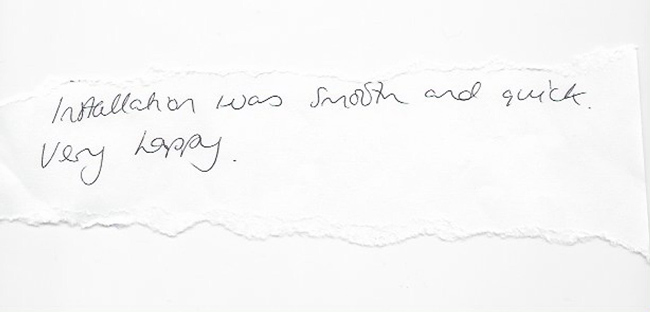 Installation was smooth and quick.
Very happy.